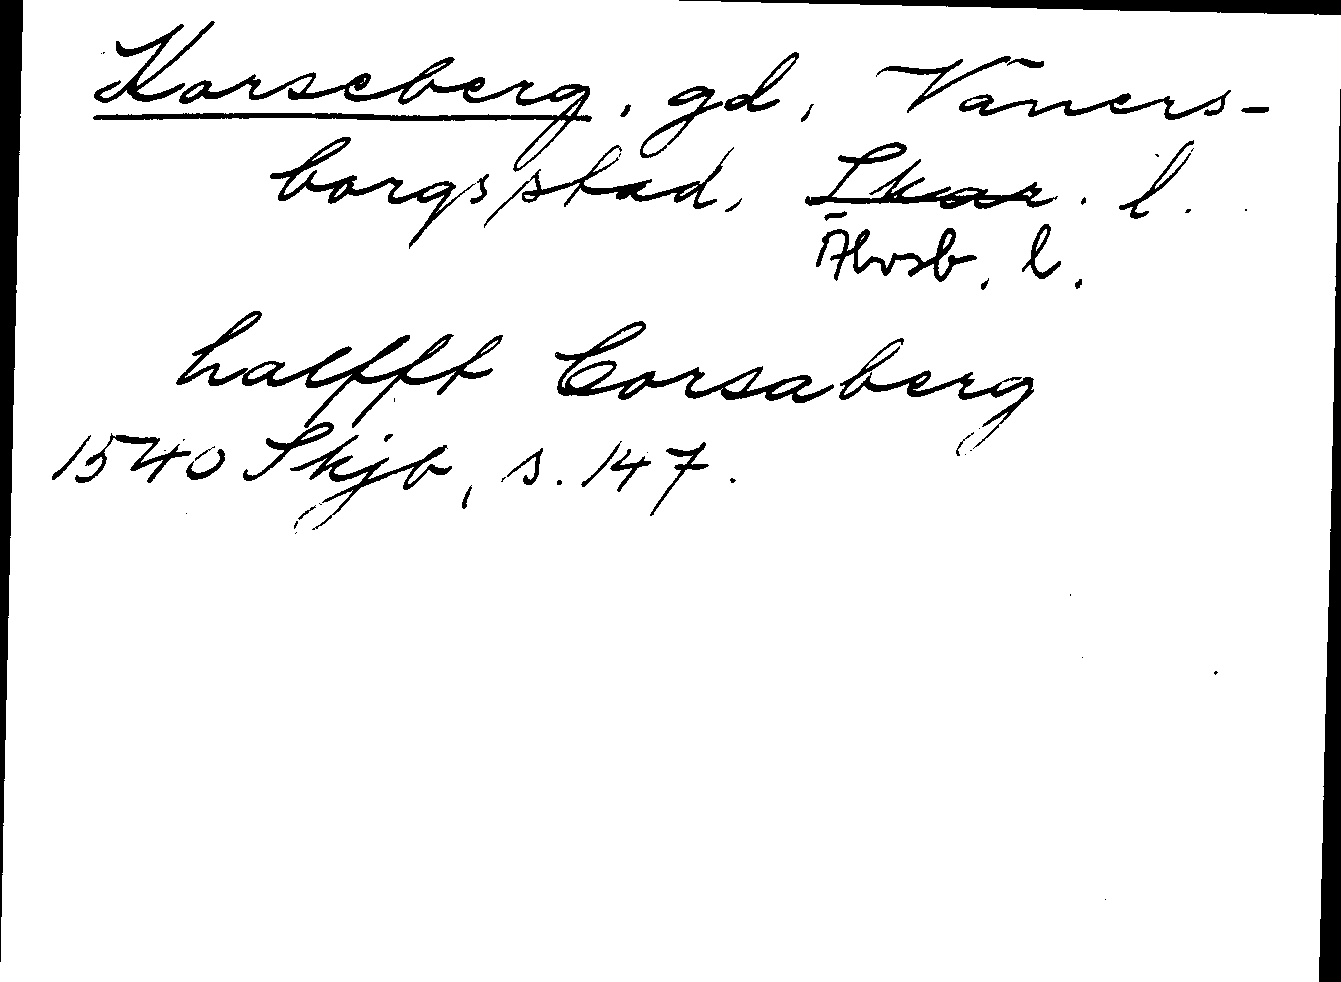 Korseberg, gd, Väners-
borgs stad, Skar. l.
Älvsb. l.
halfft Corsaberg
1540 Skjb, s. 147.